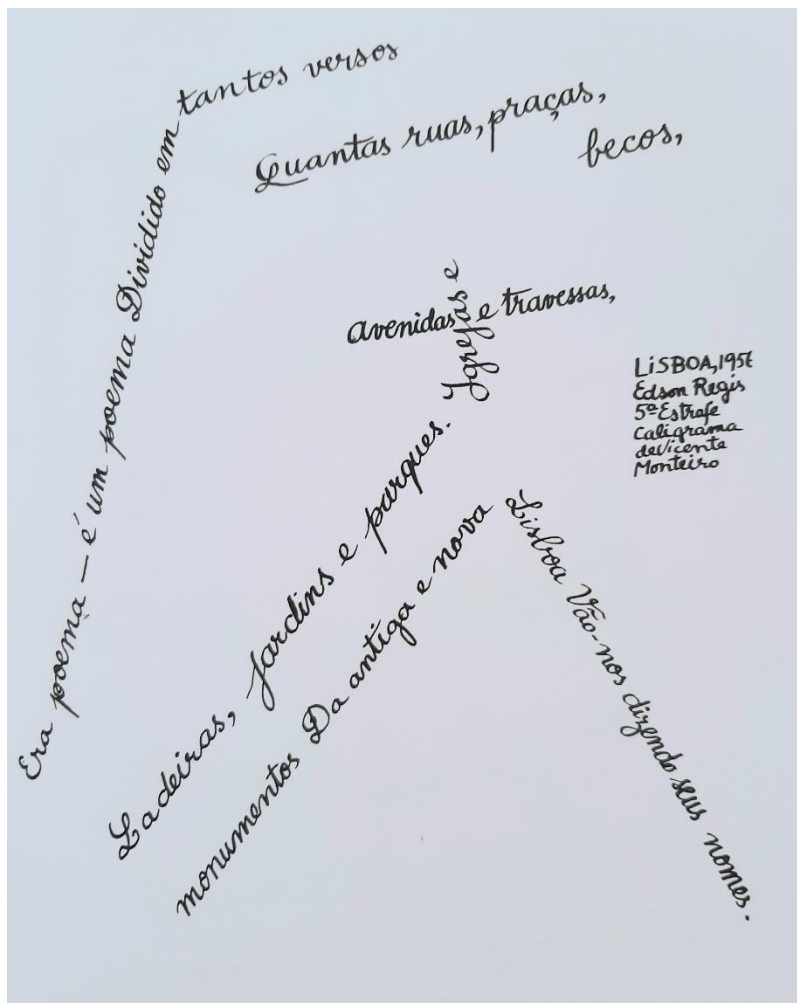 Era poema — é um poema Dividido em tantos versos
Quantas ruas, praças,
becos,
avenidas e travessas,
Ladeiras, jardins e parques. Igrejas e
monumentos Da antiga e nova
Lisboa Vão-nos dizendo seus nomes.
LiSBOA,
Edson Regis
5ª Estrofe
Caligrama
de Vicente
Monteiro